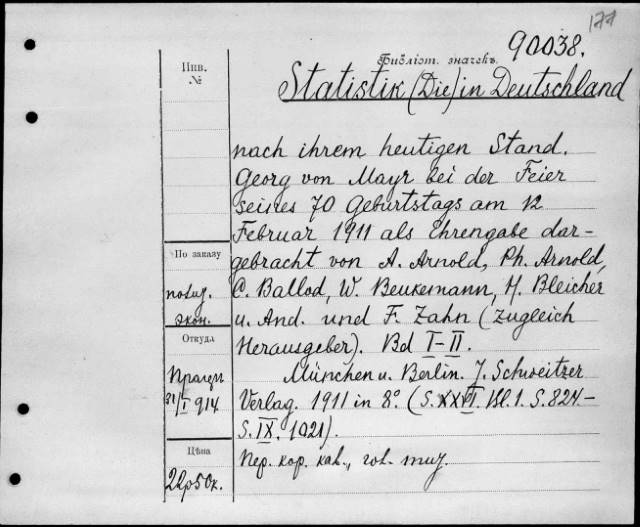 177
90038.
Библіот. значекъ.
Statistik (Die) in Deutschland
nach ihrem heutigen Stand.
Georg von Mayr bei der Feier
seines 70 Geburtstags am 12
Februar 1911 als Ehrengabe dar-
gebracht von A. Arnold, Ph. Arnold,
C. Ballod, W. Beukemann, H. Bleicher
u. And. und F. Zahn (zugleich
Herausgeber). Bd I-II.
München u. Berlin. J. Schweitzer
Verlag. 1911 in 8°. (S. XXVI. Bl. 1. S. 824.-
S. IX. 1021).
Пер. кор. 
Инв.
№
По заказу
экон.
Откуда
31/I 914
Цѣна
22р50к.